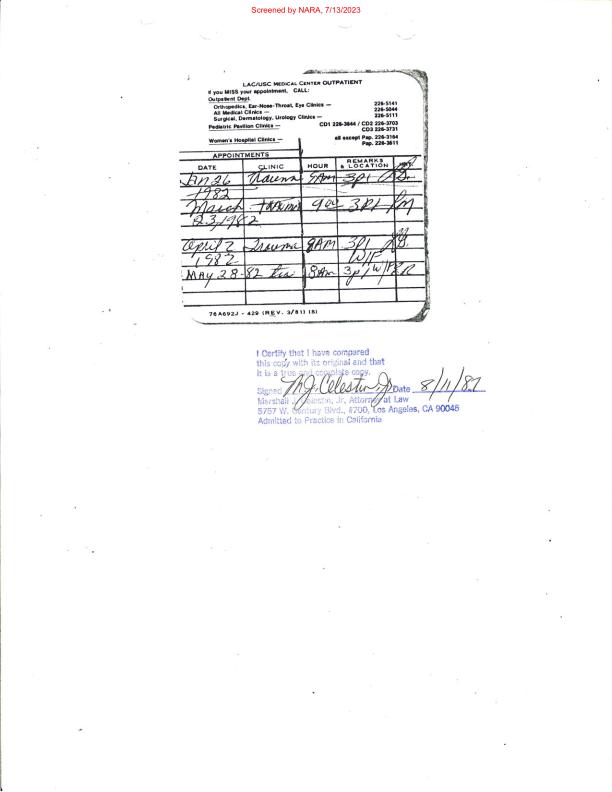 Screened by NARA, 7/13/2023
LAC/USC MEDICAL CENTER OUTPATIENT
If you MISS your appointment, CALL:
Outpatient Dept.
Orthopedics, Ear-Nose-Throat, Eye Clinics — 226-5141
All Medical Clinics — 226-5044
Surgical, Dermatology, Urology Clinics — 226-5111
Pediatric Pavilion Clinics — CD1 226-3644 / CD2 226-3703
CD3 226-3731
Women's Hospital Clinics — all except Pap. 226-3164
Pap. 226-3611
APPOINTMENTS
DATE CLINIC HOUR REMARKS & LOCATION
Jan 26 Trauma 9AM 3P1
1982
March Trauma 9 3P1
23 1982
April 2 Trauma 8AM 3P1
1982 W/F
MAY 28-82 8AM 3p1 W/F
76A692J - 429 (REV. 3/81) (8)
I Certify that I have compared
this copy with its original and that
it is a true and complete copy.
Signed MJ Celestin Jr Date 8/11/87
Marshall J. Celestin, Jr. Attorney at Law
5757 W. Century Blvd., #700, Los Angeles, CA 90045
Admitted to Practice in California